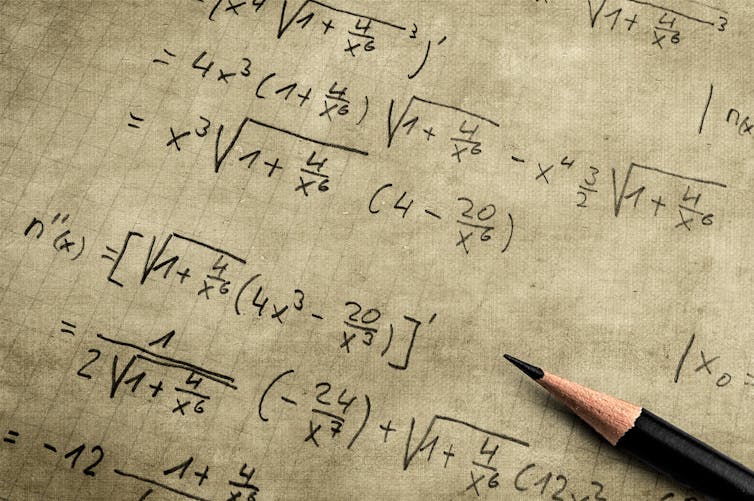 (x⁴ √(1+4/x⁶)³)' √(1+4/x⁶)³
= 4x³ (1+4/x⁶) √(1+4/x⁶) - x⁴ 3/2 √(1+4/x⁶) | n(x
= x³ √(1+4/x⁶) (4 - 20/x⁶)
n''(x) = [√(1+4/x⁶) (4x³ - 20/x³)]'
= 1/(2√(1+4/x⁶)) (-24/x⁷) + √(1+4/x⁶) (12x² | x₀ =
= -12 1+4/x⁶